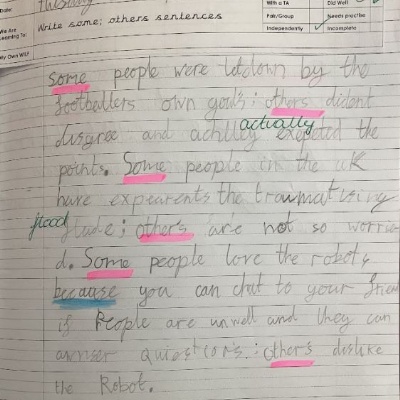 Date:
With a TA
Did Well
We Are Learning To:
Write some; others sentences
Pair/Group
Needs practise
Independently ✓
Incomplete
My Own WILF
Some people were letdown by the
footballers own goals; others didont
actually
disgree and achlley expeted the
points. Some people in the UK
have expearents the traumatising
flood
; others are not so worrie
d. Some people love the robots
because you can chat to your frien
if People are unwell and they can
awnser quiestions; others dislike
the Robot.